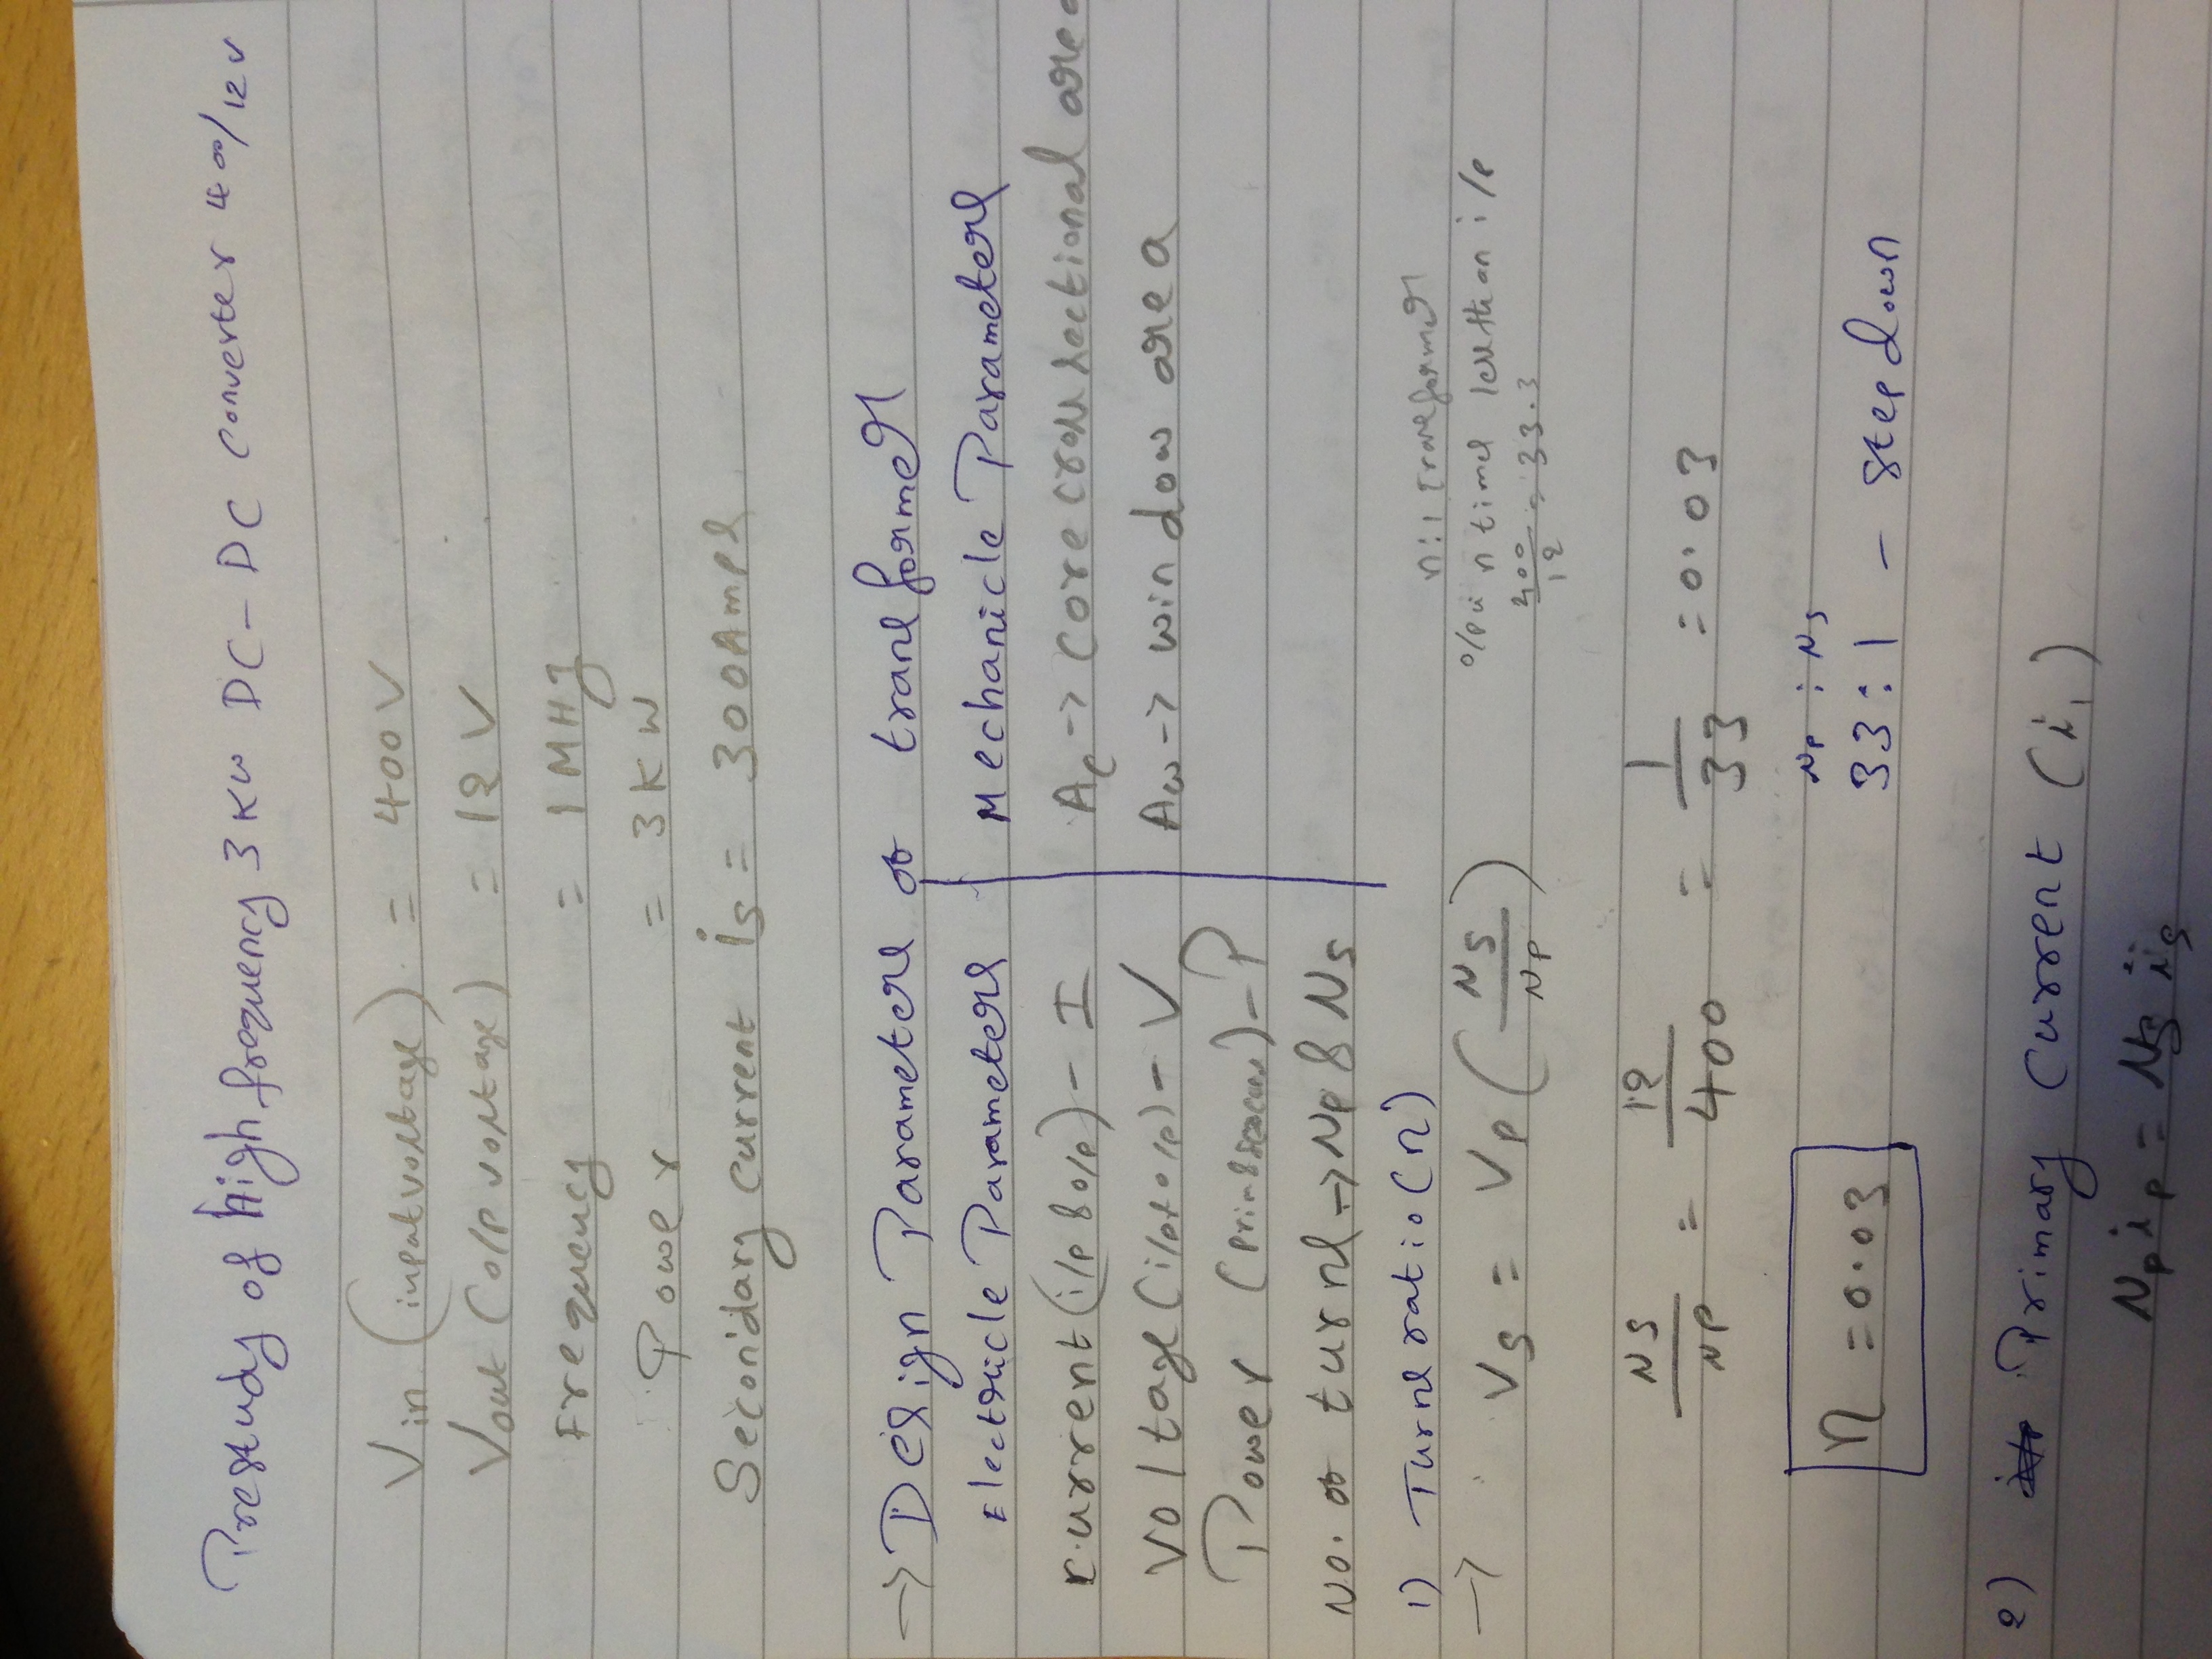 Prestudy of High frequency 3 KW DC-DC converter 400/12V
Vin (input voltage) = 400V
Vout (o/p voltage) = 12V
Frequency = 1MHz
Power = 3KW
Seconidary current is = 300Amps
→ Design Parameters of transformer
Electricle Parameters Mechanicle Parameters
current (i/p & o/p) - I Ac → core cross sectional area
Voltage (i/p & o/p) - V Aw → window area
Power (Prim & Secon) - P
No. of turns → Np & Ns
1) Turns ratio (n) n:1 transformer
→ Vs = Vp (Ns/Np) o/p is n times less than i/p
400/12 = 33.3
Ns/Np = 12/400 = 1/33 = 0.03
Np : Ns
n = 0.03 33:1 - step down
2) Primary Current (i1)
Np ip = Ns is